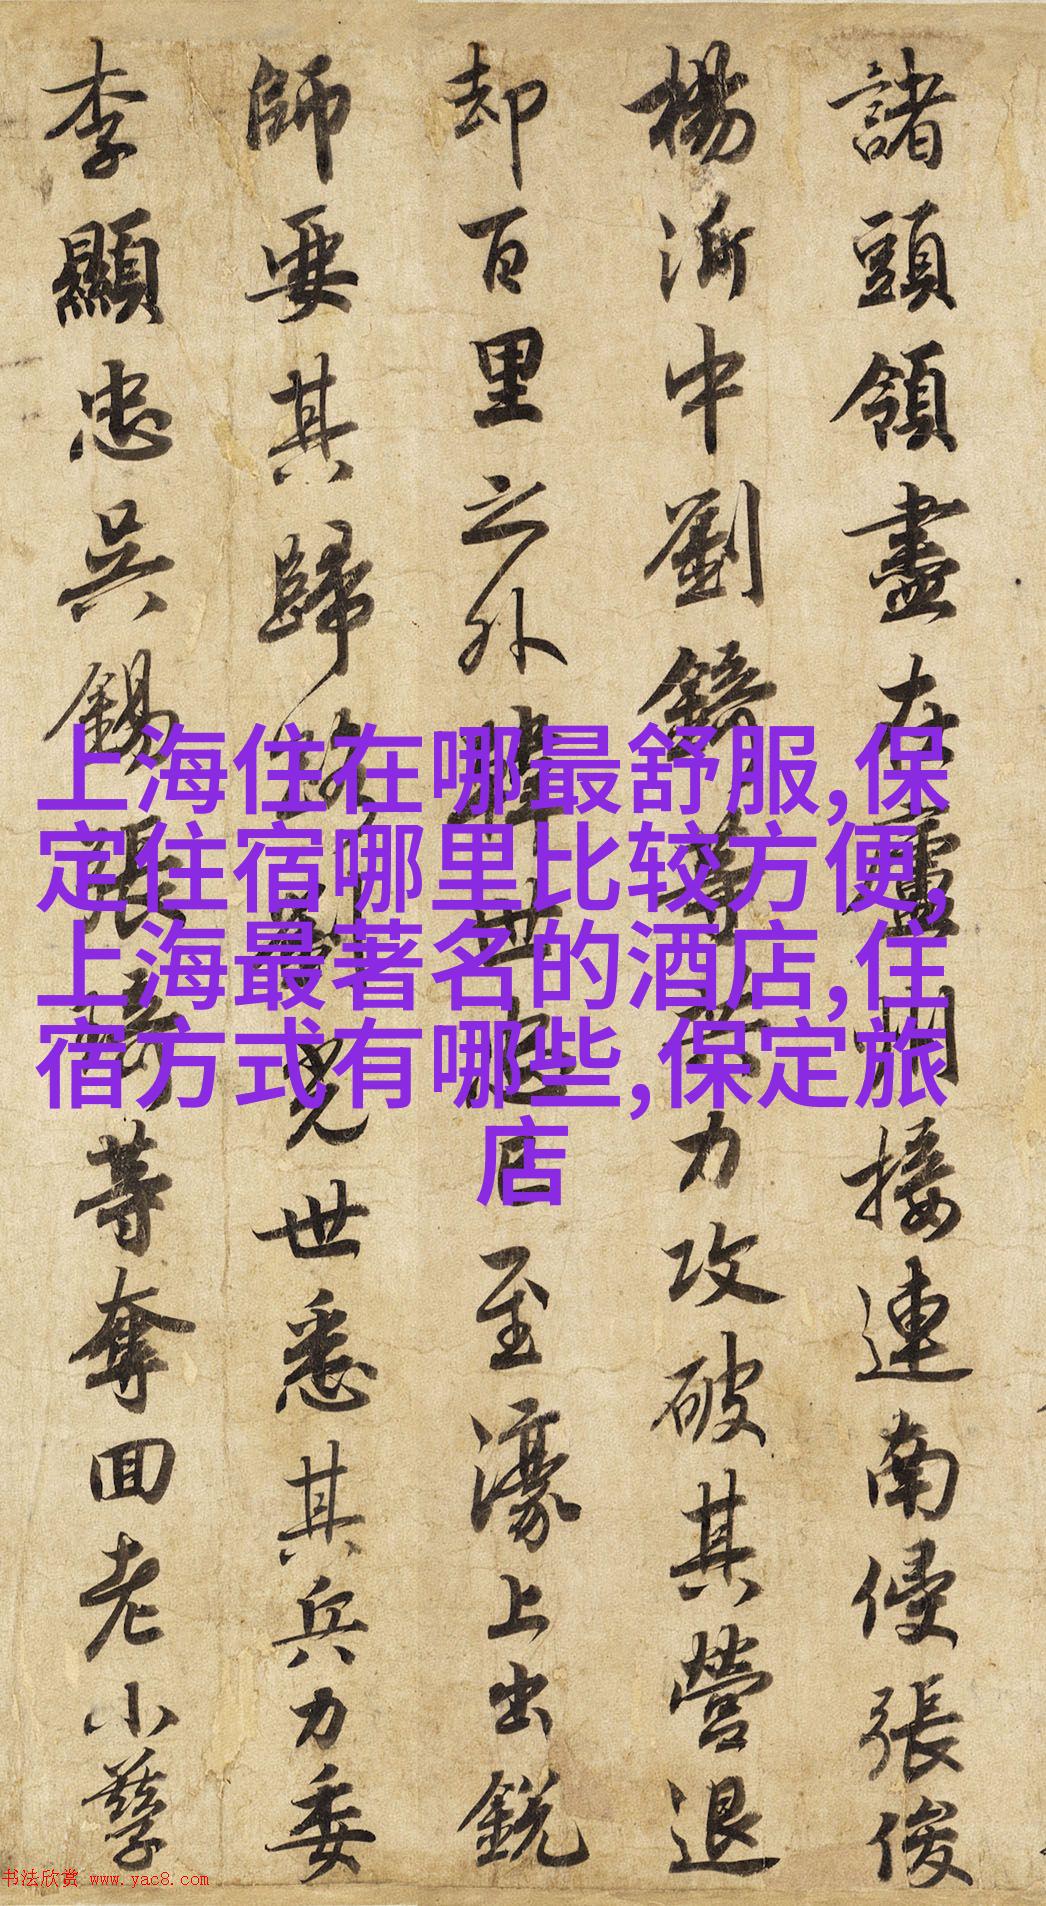 諸頭領盡在 接連南侵張俊
楊沂中劉錡 力攻破其營退
却百里之外 世 至濠上出銳
師要其歸 堯世悉其兵力委
李顯忠吳錫張琦等奪回老小孽
上海住在哪最舒服,保
定住宿哪里比较方便,
上海最著名的酒店,住
宿方式有哪些,保定旅
店
书法欣赏 www.yac8.com